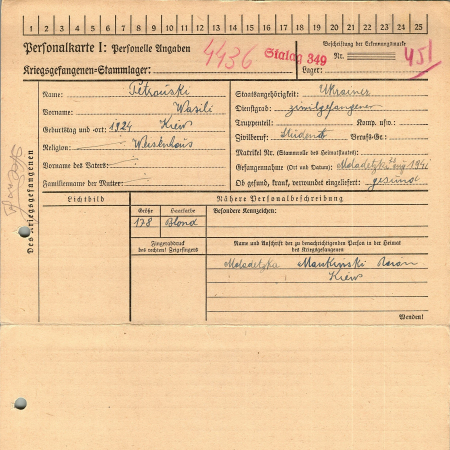 1 2 3 4 5 6 7 8 9 10 11 12 13 14 15 16 17 18 19 20 21 22 23 24 25
Personalkarte I: Personelle Angaben
Kriegsgefangenen-Stammlager:
4436 Stalag 349
Beschriftung der Erkennungsmarke
Nr. 451
Lager:
Des Kriegsgefangenen
Name: Petrouski
Vorname: Wasili
Geburtstag und -ort: 1924 Kiew
Religion: Weisenhaus
Vorname des Vaters:
Familienname der Mutter:
Staatsangehörigkeit: Ukrainer
Dienstgrad: zivilgefangener
Truppenteil: Komp. usw.:
Zivilberuf: Student Berufs-Gr.:
Matrikel Nr. (Stammrolle des Heimatstaates):
Gefangennahme (Ort und Datum):
Ob gesund, krank, verwundet eingeliefert: gesund
Lichtbild
Nähere Personalbeschreibung
Größe Haarfarbe Besondere Kennzeichen:
178 Blond
Fingerabdruck
des rechten! Zeigefingers
Name und Anschrift der zu benachrichtigenden Person in der Heimat
des Kriegsgefangenen
Moladetzka
Kiew
Wenden!